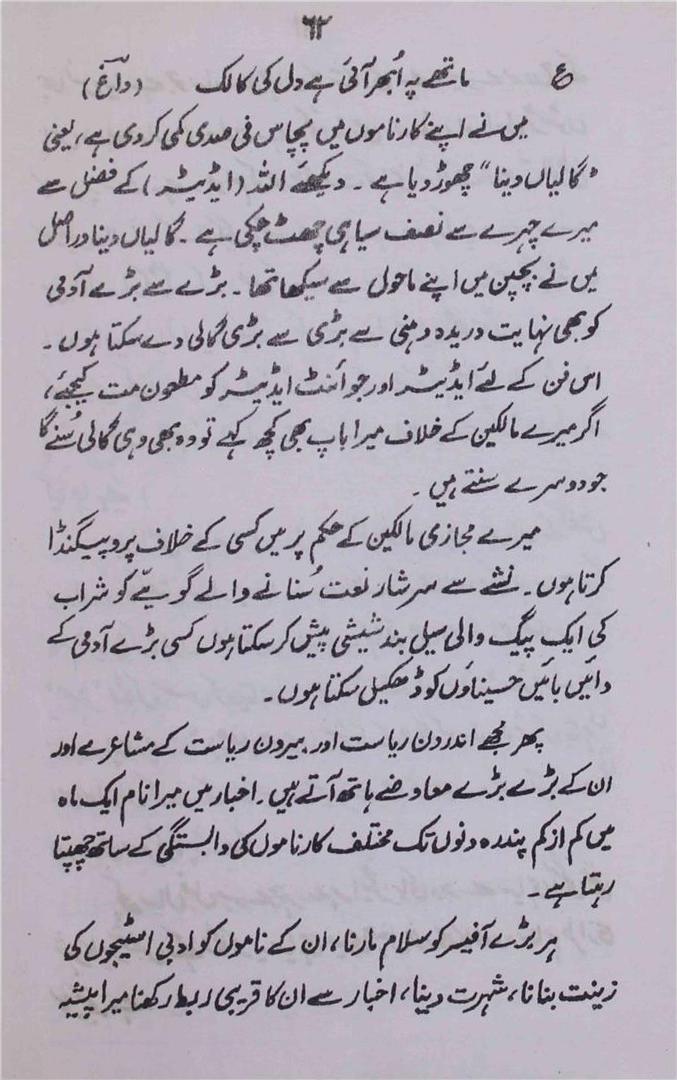 ۶۲
ع ماتھے پہ اُبھر آئی ہے دل کی کالک (داغ)
میں نے اپنے کارناموں میں پچاس فی صدی کمی کر دی ہے، یعنی
"گالیاں دینا" چھوڑ دیا ہے۔ دیکھئے اللہ (ایڈیٹر) کے فضل سے
میرے چہرے سے نصف سیاہی چھٹ چکی ہے۔ گالیاں دینا دراصل
میں نے بچپن میں اپنے ماحول سے سیکھا تھا۔ بڑے سے بڑے آدمی
کو بھی نہایت دریدہ دہنی سے بڑی سے بڑی گالی دے سکتا ہوں۔
اس فن کے لئے ایڈیٹر اور جوائنٹ ایڈیٹر کو مطعون مت کیجئے،
اگر میرے مالکین کے خلاف میرا باپ بھی کچھ کہے تو وہ بھی وہی گالی سُنے گا
جو دوسرے سنتے ہیں۔
میرے مجازی مالکین کے حکم پر میں کسی کے خلاف پروپیگنڈا
کرتا ہوں۔ نشے سے سرشار نعت سُنانے والے گویّے کو شراب
کی ایک پیگ والی سیل بند شیشی پیش کر سکتا ہوں کسی بڑے آدمی کے
دائیں بائیں حسیناؤں کو ڈھکیل سکتا ہوں۔
پھر مجھے اندرون ریاست اور بیرون ریاست کے مشاعرے اور
ان کے بڑے بڑے معاوضے ہاتھ آتے ہیں۔ اخبار میں میرا نام ایک ماہ
میں کم از کم پندرہ دنوں تک مختلف کارناموں کی وابستگی کے ساتھ چھپتا
رہتا ہے۔
ہر بڑے آفیسر کو سلام مارنا، ان کے ناموں کو ادبی اسٹیجوں کی
زینت بنانا، شہرت دینا، اخبار سے ان کا قریبی ربط رکھنا میرا پیشہ